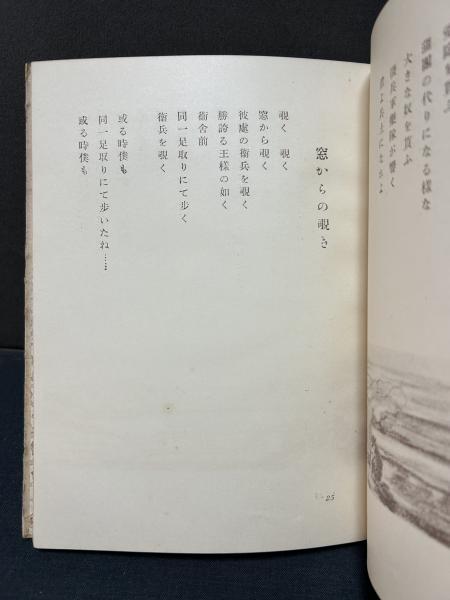 蒲團の代りになる樣な
大きな奴を貰ふ
窓からの覗き
覗く　覗く
窓から覗く
彼處の衞兵を覗く
勝誇る王樣の如く
衞舍前
同一足取りにて步く
衞兵を覗く
或る時僕も
同一足取りにて步いたね……
或る時僕も
25